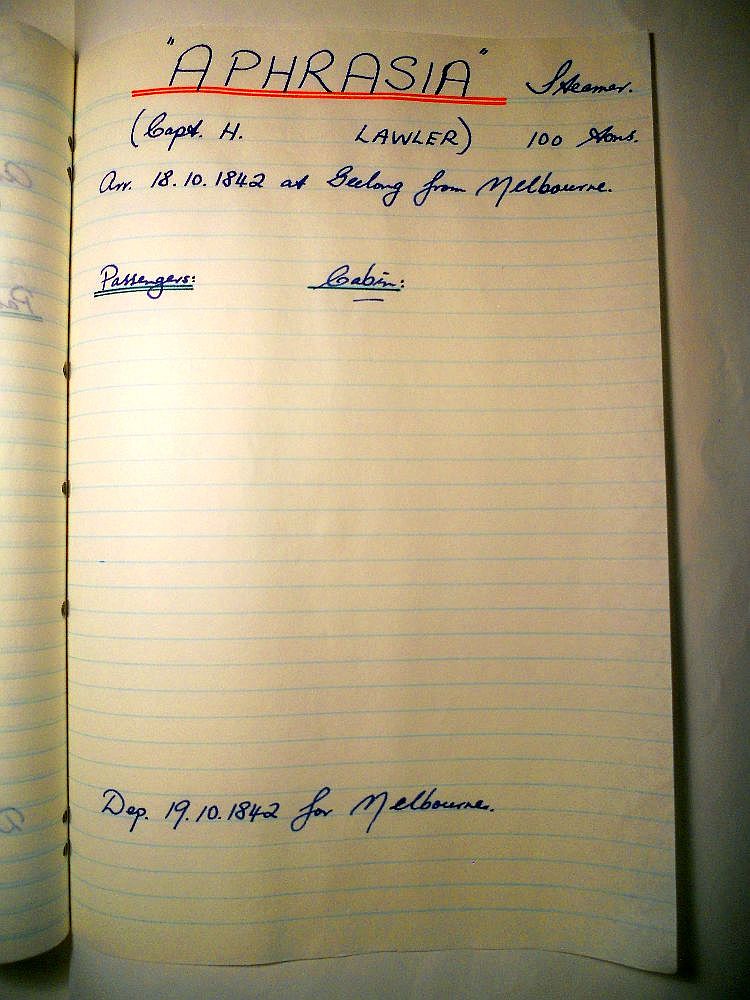 "APHRASIA" Steamer.
(Capt. H. LAWLER) 100 tons.
Arr. 18.10.1842 at Geelong from Melbourne.
Passengers: Cabin:
Dep. 19.10.1842 for Melbourne.